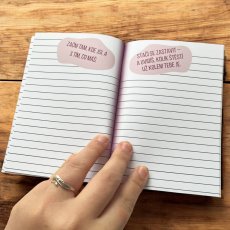 ZAČNI TAM, KDE JSI, A
S TÍM, CO MÁŠ.
STAČÍ SE ZASTAVIT –
A UVIDÍŠ, KOLIK ŠTĚSTÍ
UŽ KOLEM TEBE JE.